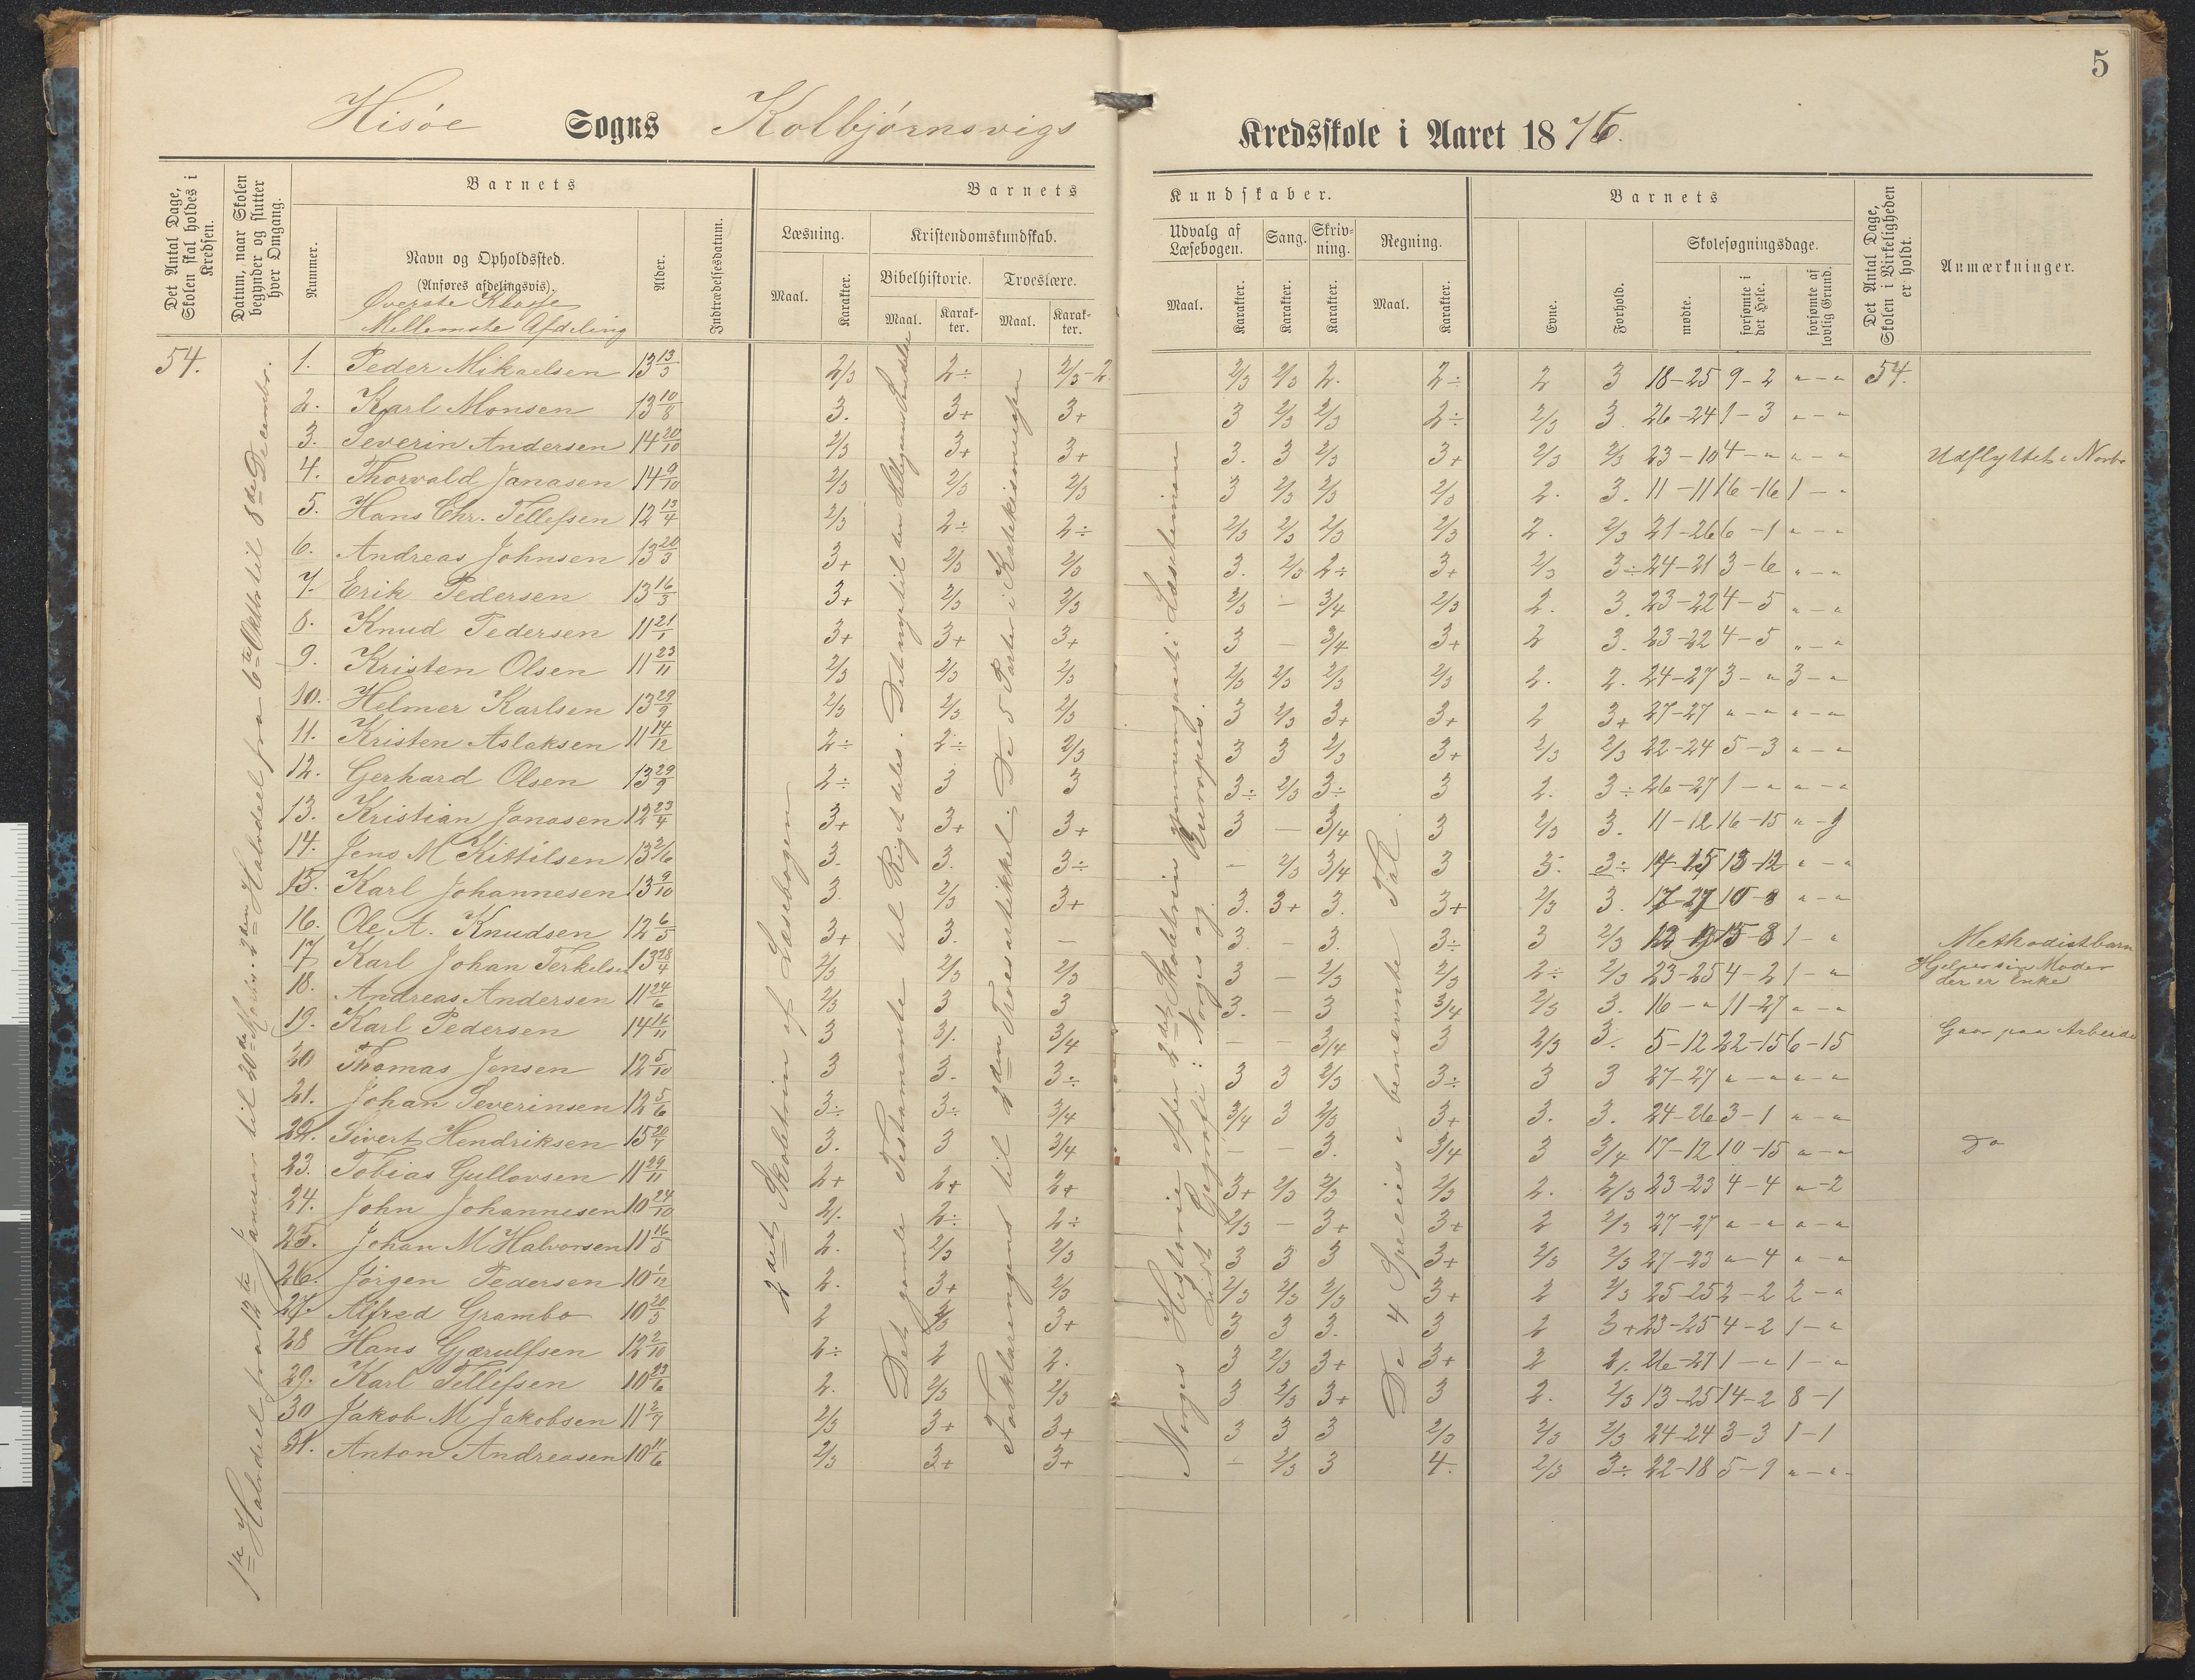 5
Hisøe Sogns Kolbjørnsvigs Kredsskole i Aaret 1876.
Det Antal Dage, Skolen skal holdes i Kredsen.
Datum, naar Skolen begynder og slutter hver Omgang.
Barnets
Nummer.
Navn og Opholdssted.
(Anføres afdelingsvis).
Øverste Klasse
Mellemste Afdeling
Alder.
Indtrædelsesdatum.
Barnets Kundskaber.
Læsning.
Maal.
Karakter.
Kristendomskundskab.
Bibelhistorie.
Maal.
Karakter.
Troeslære.
Maal.
Karakter.
Udvalg af Læsebogen.
Maal.
Karakter.
Sang.
Karakter.
Skrivning.
Karakter.
Regning.
Maal.
Karakter.
Barnets
Evne.
Forhold.
Skolesøgningsdage.
mødte.
forsømte i det Hele.
forsømte af lovlig Grund.
Det Antal Dage, Skolen i Virkeligheden er holdt.
Anmærkninger.
1ste Halvdeel fra 12te Januar til 20de Marts. 2den Halvdeel fra 6te Oktbr til 8de Decembr.
2det Skoletrin af Læsebogen
Det gamle Testamente til Riget deles. Det nye til den
Forklaringens til 3den Troesartikkel. De 5 Parter i Katekismusen
Norges Historie efter 2det Skoletrin gjennemgaaet i Læsetimen
Lidt Geografi: Norges og Europas.
De 4 Speties i benævnte Tal.
54. 1. Peder Mikaelsen 13 13/3 2/3 2÷ 2/3-2 2/3 2/3 2. 2÷ 2 3 18-25 9-2 "-" 54.
2. Karl Monsen 13 10/8 3. 3+ 3+ 3 2/3 2/3 2÷ 2/3 3. 26-24 1-3 "-"
3. Severin Andersen 14 20/10 2/3 3+ 3+ 3. 3 2/3 3+ 2/3 2/3 23-10 4-" "-" Udflyttet i Novbr
4. Thorvald Janasen 14 9/10 2/3 2/3 2/3 3 2/3 2/3 2/3 2. 3. 11-11 16-16 1-"
5. Hans Chr. Tellefsen 12 13/4 2/3 2÷ 2÷ 2/3 2/3 2/3 2/3 2. 2/3 21-26 6-1 "-"
6. Andreas Johnsen 13 20/3 3+ 2/3 2/3 3. 2/3 2÷ 3+ 2/3 3÷ 24-21 3-6 "-"
7. Erik Pedersen 13 16/3 3+ 2/3 2/3 2/3 - 3/4 2/3 2. 3. 23-22 4-5 "-"
8. Knud Pedersen 11 21/1 3+ 3+ 3+ 3 - 3/4 3+ 2 3. 23-22 4-5 "-"
9. Kristen Olsen 11 23/11 2/3 2/3 2/3 2/3 2/3 2/3 2/3 2. 2. 24-27 3-" 3-"
10. Helmer Karlsen 13 29/9 2/3 2/3 2/3 3 2/3 3+ 3+ 2 3+ 27-27 "-" "-"
11. Kristen Aslaksen 11 14/12 2÷ 2÷ 2/3 3 3 2/3 3+ 2/3 2/3 22-24 5-3 "-"
12. Gerhard Olsen 13 29/9 2÷ 3 3 3÷ 2/3 3÷ 3 2. 3÷ 26-27 1-" "-"
13. Kristian Jonasen 12 23/4 3+ 3+ 3+ 3 - 3/4 3 2/3 3. 11-12 16-15 "-9
14. Jens M Kittilsen 13 2/6 3. 3. 3÷ - 2/3 3/4 3 3. 3÷ 14-15 13-12 "-"
15. Karl Johannesen 13 9/10 3. 2/3 3+ 3. 3+ 3. 3+ 2/3 3. 17-27 10-" "-"
16. Ole A. Knudsen 12 6/5 3+ 3. - 3. - 3. 3÷ 3 2/3 12-19 15-8 1-" Methodistbarn
17 Karl Johan Terkelsen 13 28/4 2/3 2/3 2/3 3 - 2/3 2/3 2÷ 2/3 23-25 4-2 1-" Hjelper sin Moder der er Enke
18. Andreas Andersen 11 24/6 2/3 3 3 3. - 3 3/4 2/3 3. 16-" 11-27 "-"
19. Karl Pedersen 14 14/11 3 3/. 3/4 - - 3/4 3 2/3 3. 5-12 22-15 6-15 Gaar paa Arbeide
20 Thomas Jensen 12 5/10 3 3. 3÷ 3 3 2/3 3÷ 3 3 27-27 "-" "-"
21. Johan Severinsen 12 5/6 3÷ 3÷ 3/4 3/4 3 2/3 3+ 3. 3. 24-26 3-1 "-"
22. Sivert Hendriksen 15 20/7 3. 3 3/4 - - 3. 3/4 3 3/4 17-12 10-15 "-" Do
23. Tobias Gullovsen 11 29/11 2+ 2+ 2+ 3+ 2/3 2/3 2/3 2. 2/3 23-23 4-4 "-2
24. John Johannesen 10 24/10 2/. 2÷ 2÷ 2/3 - 3+ 3+ 2 2/3 27-27 "-" "-"
25. Johan M Halvorsen 11 16/5 2. 2/3 2/3 3 3 3 3+ 2/3 2/3 27-23 "-4 "-"
26. Jørgen Pedersen 10 1/12 2. 3+ 2/3 2/3 2/3 2/3 3+ 2 2/3 25-25 2-2 2-"
27. Alfred Grambo 10 20/3 2 2/3 3+ 3 3 3. 3 2 3+ 23-25 4-2 1-"
28 Hans Gjærulfsen 12 2/10 2÷ 2 2. 3 2/3 3+ 3+ 2 2/. 26-27 1-" 1-"
29. Karl Tellefsen 10 23/6 2. 2/3 2/3 3 2/3 3+ 3 2. 2/3 13-25 14-2 8-1
30 Jakob M Jakobsen 11 2/7 2/3 3+ 3+ 3 3 3 2/3 2/3 2/3 24-24 3-3 1-1
31. Anton Andreasen 10 11/6 2/3 3+ 3+ - 2/3 3 4. 2/3 3÷ 22-18 5-9 "-"